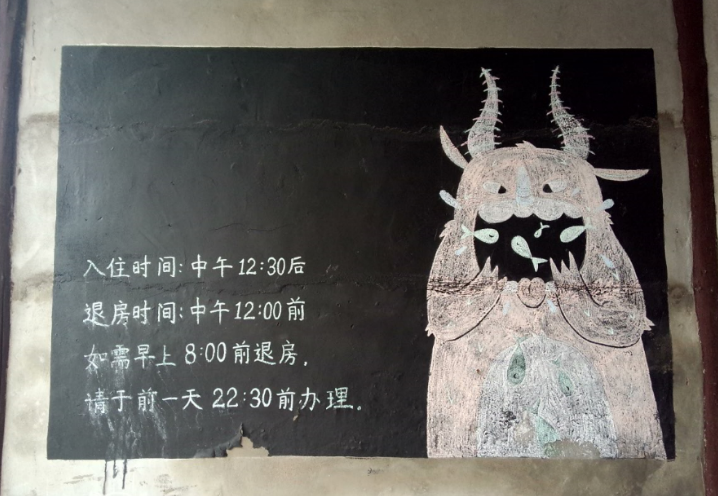 入住时间:中午12:30后
退房时间:中午12:00前
如需早上8:00前退房,
请于前一天22:30前办理.